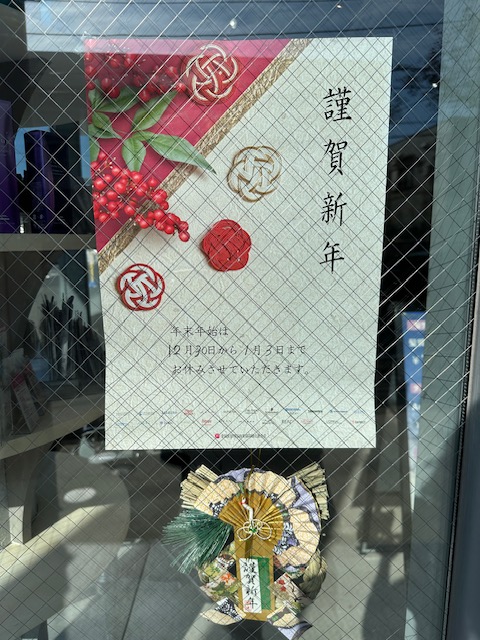 謹賀新年
年末年始は
12月30日から1月3日まで
お休みさせていただきます。
謹賀新年